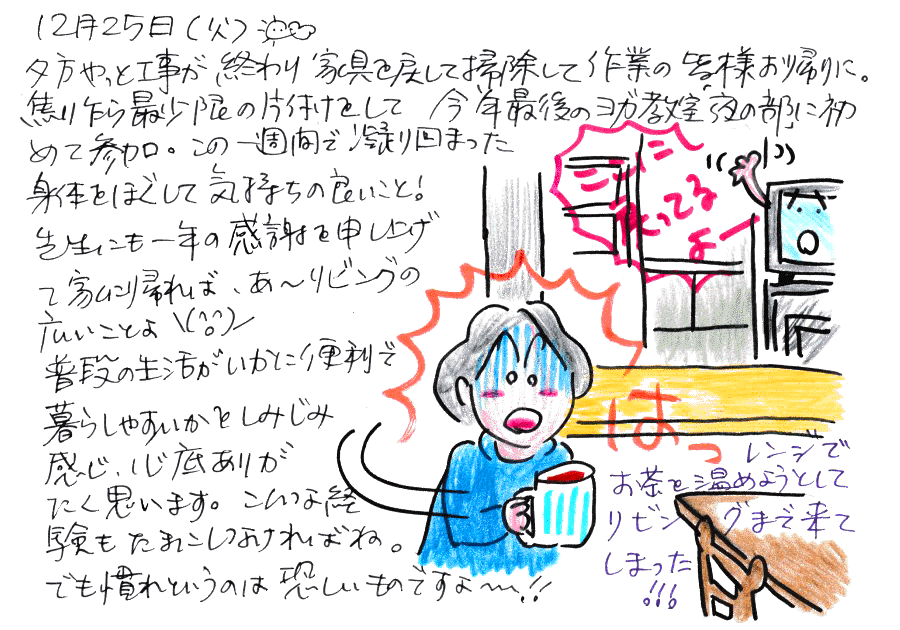 12月25日(火)
夕方やっと工事が終わり家具を戻して掃除して作業の皆様お帰りに。
焦り乍ら最少限の片付けをして 今年最後のヨガ教室「夜の部」に初
めて参加。この一週間で凝り回まった
身体をほぐして気持ちの良いこと!
先生にも一年の感謝を申し上げ
て家に帰れば、あ〜リビングの
広いことよ\(^o^)/
普段の生活がいかに便利で
暮らしやすいかとしみじみ
感じ、心底ありが
たく思います。こんな経
験もたまにしなければね。
でも慣れというのは恐しいものですよ〜!!
ココに
戻ってる
よー
はっ
レンジで
お茶を温めようとして
リビングまで来て
しまった
!!!